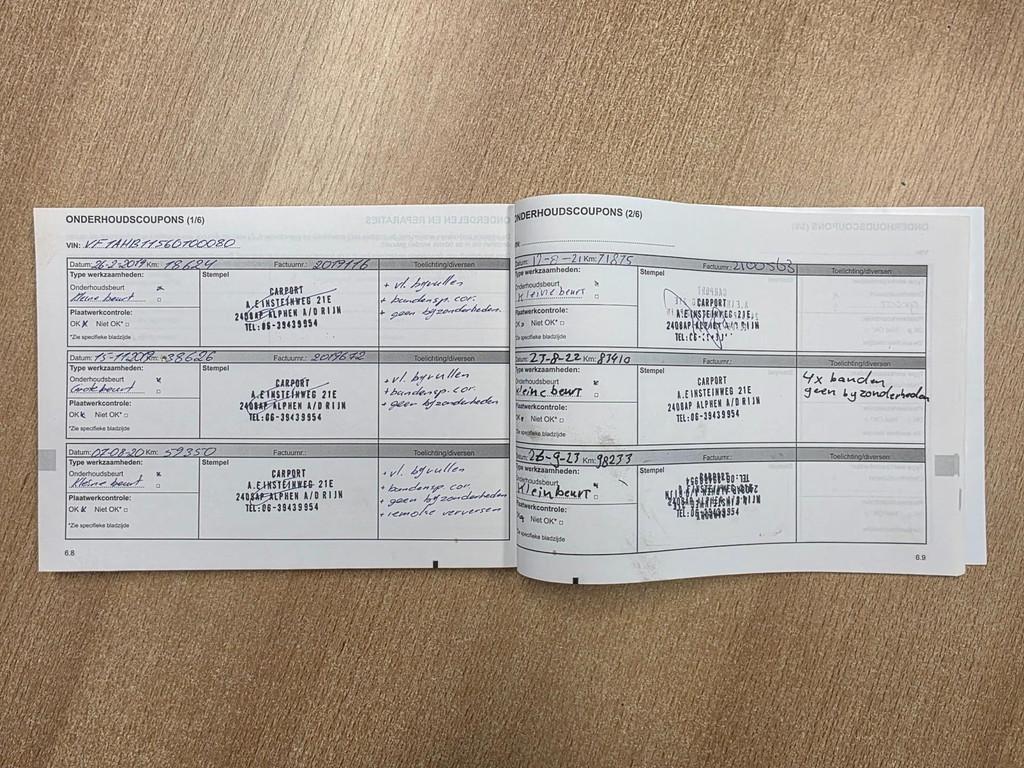 ONDERHOUDSCOUPONS (1/6)
VIN: VF1AHB11560100080
Datum: 26-2-2019 Km: 18624 Factuurnr.: 2019116 Toelichting/diversen
Type werkzaamheden: Stempel
Onderhoudsbeurt
kleine beurt
Plaatwerkcontrole:
OK Niet OK*
*Zie specifieke bladzijde
CARPORT
A.EINSTEINWEG 21E
2408AP ALPHEN A/D RIJN
TEL:06-39439954
+ vl. bijvullen
+ bandensp. cor.
+ geen bijzonderheden.
Datum: 15-11-2019 Km: 38626 Factuurnr.: 2019672 Toelichting/diversen
Type werkzaamheden: Stempel
Onderhoudsbeurt
Grote beurt
Plaatwerkcontrole:
OK Niet OK*
*Zie specifieke bladzijde
CARPORT
A.EINSTEINWEG 21E
2408AP ALPHEN A/D RIJN
TEL:06-39439954
+ vl. bijvullen
+ bandensp. cor.
+ geen bijzonderheden
Datum: 07-08-20 Km: 59350 Factuurnr.: Toelichting/diversen
Type werkzaamheden: Stempel
Onderhoudsbeurt
kleine beurt
Plaatwerkcontrole:
OK Niet OK*
*Zie specifieke bladzijde
CARPORT
A.EINSTEINWEG 21E
2408AP ALPHEN A/D RIJN
TEL:06-39439954
+ vl. bijvullen
+ bandensp. cor.
+ geen bijzonderheden
+ remolie verversen
6.8
ONDERHOUDSCOUPONS (2/6)
Datum: 17-8-21 Km: 71875 Factuurnr.: 2100563 Toelichting/diversen
Type werkzaamheden: Stempel
Onderhoudsbeurt
kleine beurt
Plaatwerkcontrole:
OK Niet OK*
*Zie specifieke bladzijde
CARPORT
A.EINSTEINWEG 21E
2408AP ALPHEN A/D RIJN
Datum: 23-8-22 Km: 83410 Factuurnr.: Toelichting/diversen
Type werkzaamheden: Stempel
Onderhoudsbeurt
kleine beurt
Plaatwerkcontrole:
OK Niet OK*
*Zie specifieke bladzijde
CARPORT
A.EINSTEINWEG 21E
2408AP ALPHEN A/D RIJN
TEL:06-39439954
4x banden
geen byzonderheden
Datum: 26-9-23 Km: 98233 Factuurnr.: Toelichting/diversen
Type werkzaamheden: Stempel
Onderhoudsbeurt
Klein beurt
Plaatwerkcontrole:
Niet OK*
*Zie specifieke bladzijde
TEL:06-39439954
6.9